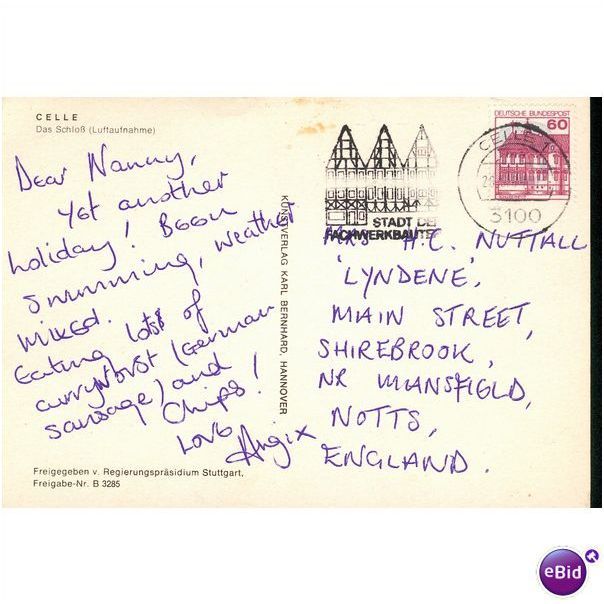 CELLE
Das Schloß (Luftaufnahme)
Dear Nanny,
Yet another
holiday! Been
swimming, weather
mixed.
Eating lots of
currywurst (German
sausage) and
chips!
Love
Angix
Freigegeben v. Regierungspräsidium Stuttgart,
Freigabe-Nr. B 3285
KUNSTVERLAG KARL BERNHARD, HANNOVER
STADT DER
FACHWERKBAUTEN
DEUTSCHE BUNDESPOST
60
CELLE 1
3100
MRS H.C. NUTTALL
'LYNDENE',
MAIN STREET,
SHIREBROOK,
NR MANSFIELD,
NOTTS,
ENGLAND.
eBid